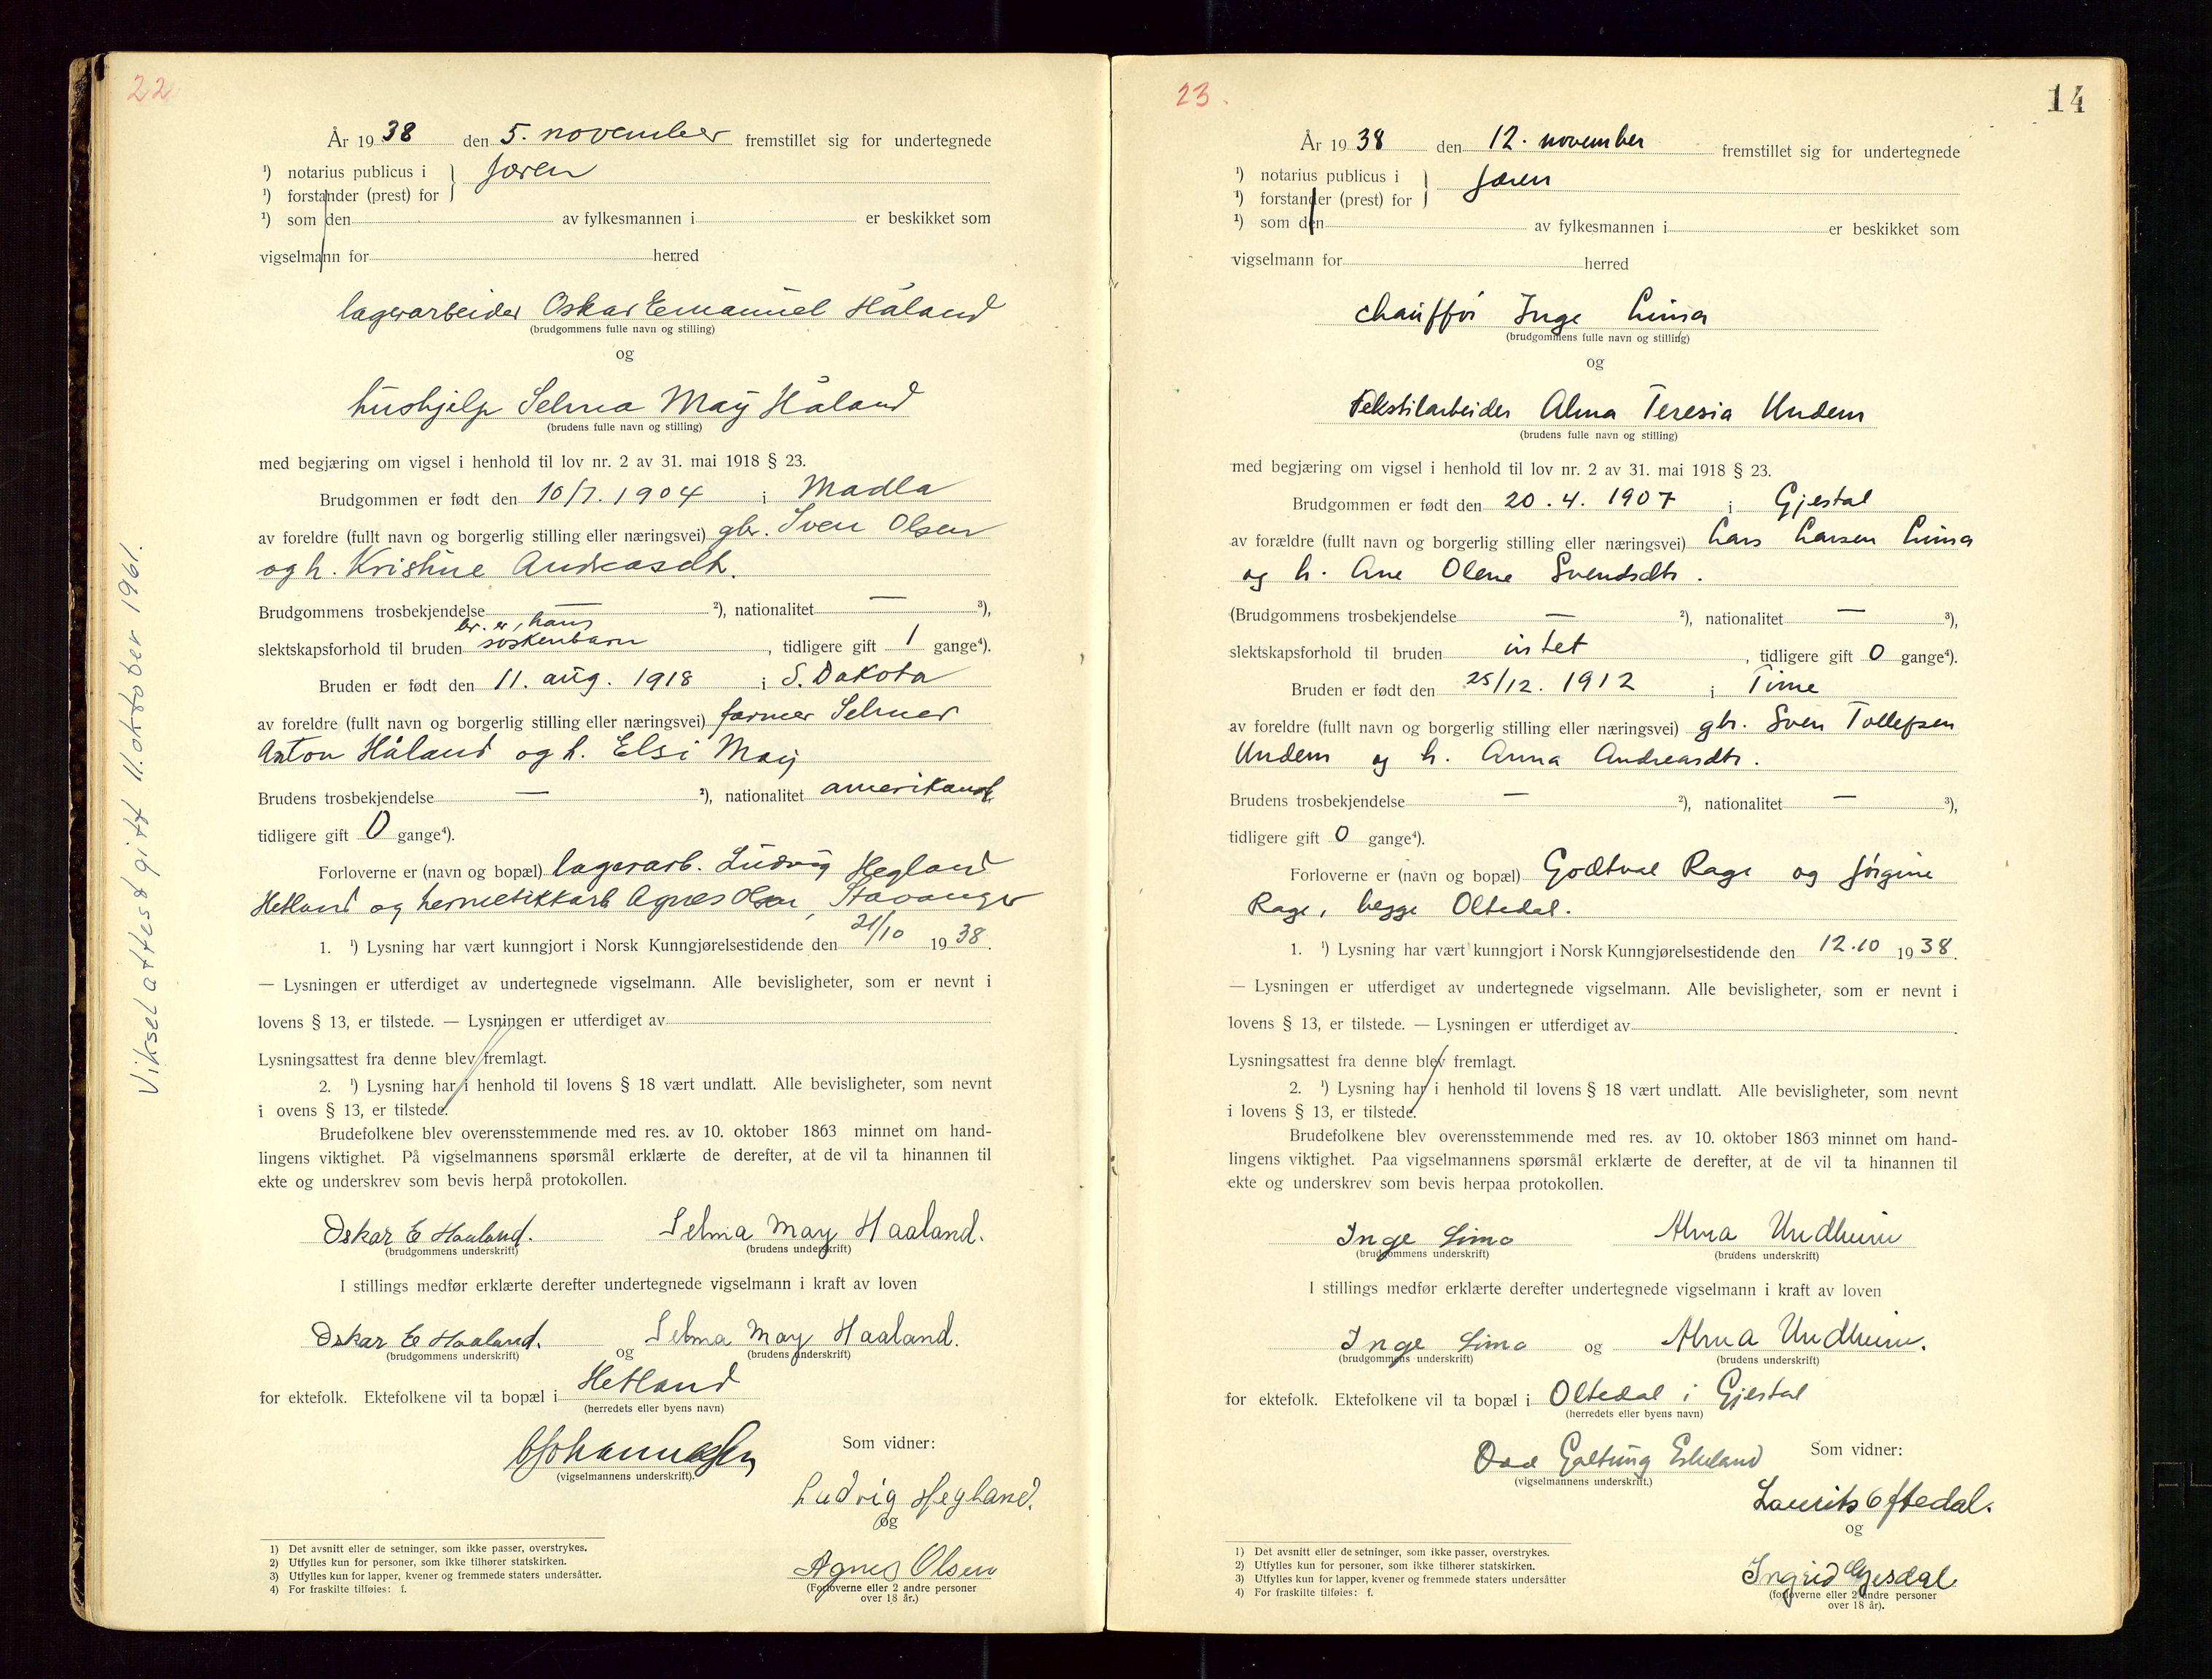 22
År 1938 den 5. november fremstillet sig for undertegnede
¹) notarius publicus i } Jæren
¹) forstander (prest) for
¹) som den av fylkesmannen i er beskikket som
vigselmann for herred
lagerarbeider Oskar Emanuel Håland
(brudgommens fulle navn og stilling)
og
hushjelp Selma May Håland
(brudens fulle navn og stilling)
med begjæring om vigsel i henhold til lov nr. 2 av 31. mai 1918 § 23.
Brudgommen er født den 10/7. 1904 i Madla
av foreldre (fullt navn og borgerlig stilling eller næringsvei) gbr. Sven Olsen
og h. Kristine Andreasdtr.
Brudgommens trosbekjendelse — ²), nationalitet — ³),
br. er hans
slektskapsforhold til bruden søskenbarn, tidligere gift 1 gange⁴).
Bruden er født den 11. aug. 1918 i S. Dakota
av foreldre (fullt navn og borgerlig stilling eller næringsvei) farmer Selmer
Anton Håland og h. Elsi May
Brudens trosbekjendelse — ²), nationalitet amerikansk
tidligere gift 0 gange⁴).
Forloverne er (navn og bopæl) lagerarb. Ludvig Hegland
Hetland og hermetikkarb Agnes Olsen, Stavanger
1. ¹) Lysning har vært kunngjort i Norsk Kunngjørelsestidende den 21/10 1938.
— Lysningen er utferdiget av undertegnede vigselmann. Alle bevisligheter, som er nevnt i
lovens § 13, er tilstede. — Lysningen er utferdiget av
Lysningsattest fra denne blev fremlagt.
2. ¹) Lysning har i henhold til lovens § 18 vært undlatt. Alle bevisligheter, som nevnt
i ovens § 13, er tilstede.
Brudefolkene blev overensstemmende med res. av 10. oktober 1863 minnet om hand-
lingens viktighet. På vigselmannens spørsmål erklærte de derefter, at de vil ta hinannen til
ekte og underskrev som bevis herpå protokollen.
Oskar E Haaland. Selma May Haaland.
(brudgommens underskrift) (brudens underskrift)
I stillings medfør erklærte derefter undertegnede vigselmann i kraft av loven
Oskar E Haaland. og Selma May Haaland.
(brudgommens underskrift) (brudens underskrift)
for ektefolk. Ektefolkene vil ta bopæl i Hetland
(herredets eller byens navn)
Johannessen
(vigselmannens underskrift).
Som vidner:
Ludvig Hegland.
og
Agnes Olsen
(Forloverne eller 2 andre personer
over 18 år.)
1) Det avsnitt eller de setninger, som ikke passer, overstrykes.
2) Utfylles kun for personer, som ikke tilhører statskirken.
3) Utfylles kun for lapper, kvener og fremmede staters undersåtter.
4) For fraskilte tilføies: f.
Vikselattest gitt 11. oktober 1961.
23.
14
År 1938 den 12. november fremstillet sig for undertegnede
¹) notarius publicus i } Jæren
¹) forstander (prest) for
¹) som den av fylkesmannen i er beskikket som
vigselmann for herred
chauffør Inge Lima
(brudgommens fulle navn og stilling)
og
Tekstilarbeider Alma Teresia Undem
(brudens fulle navn og stilling)
med begjæring om vigsel i henhold til lov nr. 2 av 31. mai 1918 § 23.
Brudgommen er født den 20. 4. 1907 i Gjestal
av forældre (fullt navn og borgerlig stilling eller næringsvei) Lars Larsen Lima
og h. Ane Olene Svendsdtr.
(Brudgommens trosbekjendelse — ²), nationalitet — ³),
slektskapsforhold til bruden intet, tidligere gift 0 gange⁴).
Bruden er født den 25/12. 1912 i Time
av foreldre (fullt navn og borgerlig stilling eller næringsvei) gbr. Sven Tollefsen
Undem og h. Anna Andreasdtr.
Brudens trosbekjendelse — ²), nationalitet — ³),
tidligere gift 0 gange⁴).
Forloverne er (navn og bopæl) Godtval Rage og Jørgine
Rage, begge Oltedal.
1. ¹) Lysning har vært kunngjort i Norsk Kunngjørelsestidende den 12.10 1938.
— Lysningen er utferdiget av undertegnede vigselmann. Alle bevisligheter, som er nevnt i
lovens § 13, er tilstede. — Lysningen er utferdiget av
Lysningsattest fra denne blev fremlagt.
2. ¹) Lysning har i henhold til lovens § 18 vært undlatt. Alle bevisligheter, som nevnt
i lovens § 13, er tilstede.
Brudefolkene blev overensstemmende med res. av 10. oktober 1863 minnet om hand-
lingens viktighet. Paa vigselmannens spørsmål erklærte de derefter, at de vil ta hinannen til
ekte og underskrev som bevis herpaa protokollen.
Inge Lima Alma Undheim
(brudgommens underskrift) (brudens underskrift)
I stillings medfør erklærte derefter undertegnede vigselmann i kraft av loven
Inge Lima og Alma Undheim.
(brudgommens underskrift) (brudens underskrift)
for ektefolk. Ektefolkene vil ta bopæl i Oltedal i Gjestal
(herredets eller byens navn)
Galtung Eskeland
(vigselmannens underskrift.)
Som vidner:
Laurits Oftedal.
og
Ingrid Gjesdal
(forloverne eller 2 andre personer
over 18 år).
1) Det avsnitt eller de setninger, som ikke passer, overstrykes.
2) Utfylles kun for personer, som ikke tilhører statskirken.
3) Utfylles kun for lapper, kvener og fremmede staters undersåtter
4) For fraskilte tilføies: f.